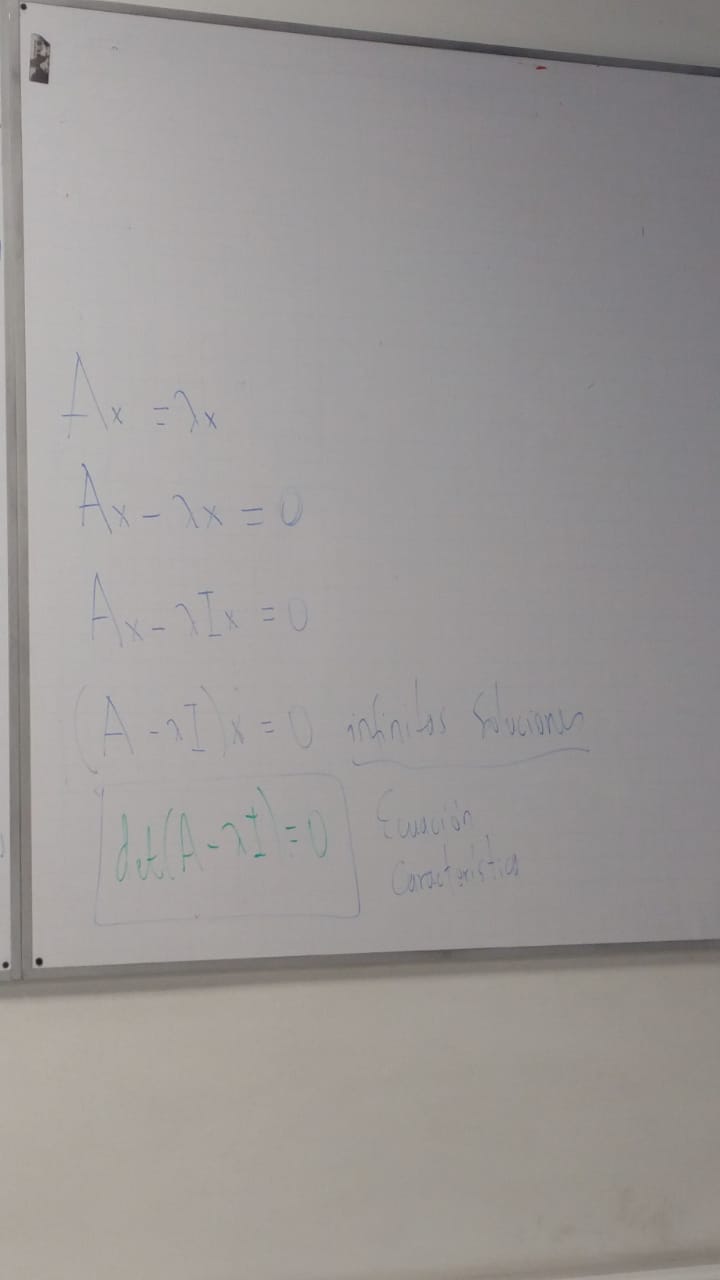 Ax = λx
Ax - λx = 0
Ax - λIx = 0
(A - λI)x = 0 infinitas soluciones
det(A - λI) = 0 Ecuación
Característica